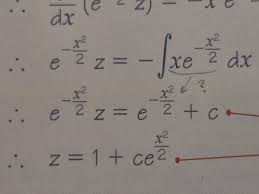 ∴ d/dx (e^{-x²/2} z) = -x e
∴ e^{-x²/2} z = -∫xe^{-x²/2} dx
?
∴ e^{-x²/2} z = e^{-x²/2} + c
∴ z = 1 + ce^{x²/2}